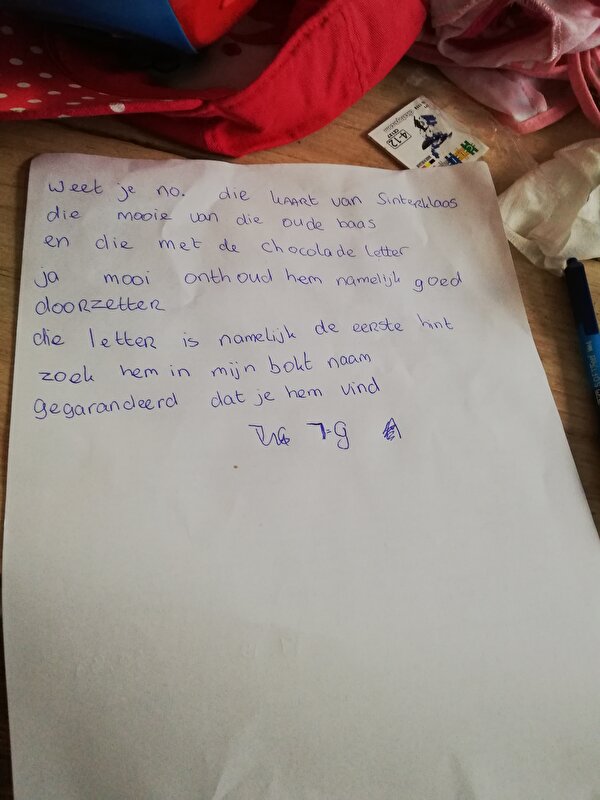 weet je no. die kaart van Sinterklaas
die mooie van die oude baas
en die met de chocolade letter
ja mooi onthoud hem namelijk goed
doorzetter
die letter is namelijk de eerste hint
zoek hem in mijn bokt naam
gegarandeerd dat je hem vind
7-g
4-12